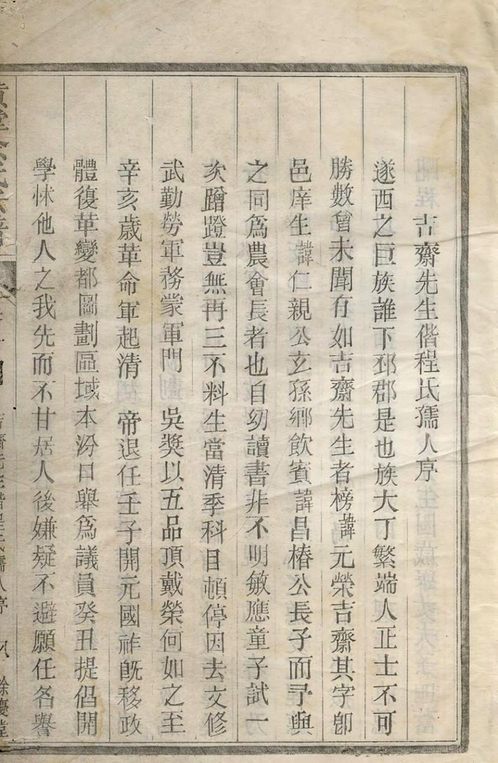 吉齋先生偕程氏孺人序
遂西之巨族誰下邳郡是也族大丁繁端人正士不可
勝數曾未聞有如吉齋先生者榜諱元榮吉齋其字卽
邑庠生諱仁親公玄孫鄉飲賓諱昌椿公長子而予與
之同爲農會長者也自幼讀書非不明敏應童子試一
矣蹭蹬豈無再三不料生當清季科目頓停因去文修
武勤勞軍務蒙軍門 吳奬以五品頂戴榮何如之至
辛亥歲革命軍起清 帝退任壬子開元國祚旣移政
體復革變都圖劃區域本汾日舉爲議員癸丑提倡開
學林他人之我先而不甘居人後嫌疑不避願任名譽
吉齋先生偕程氏孺人序
餘慶堂